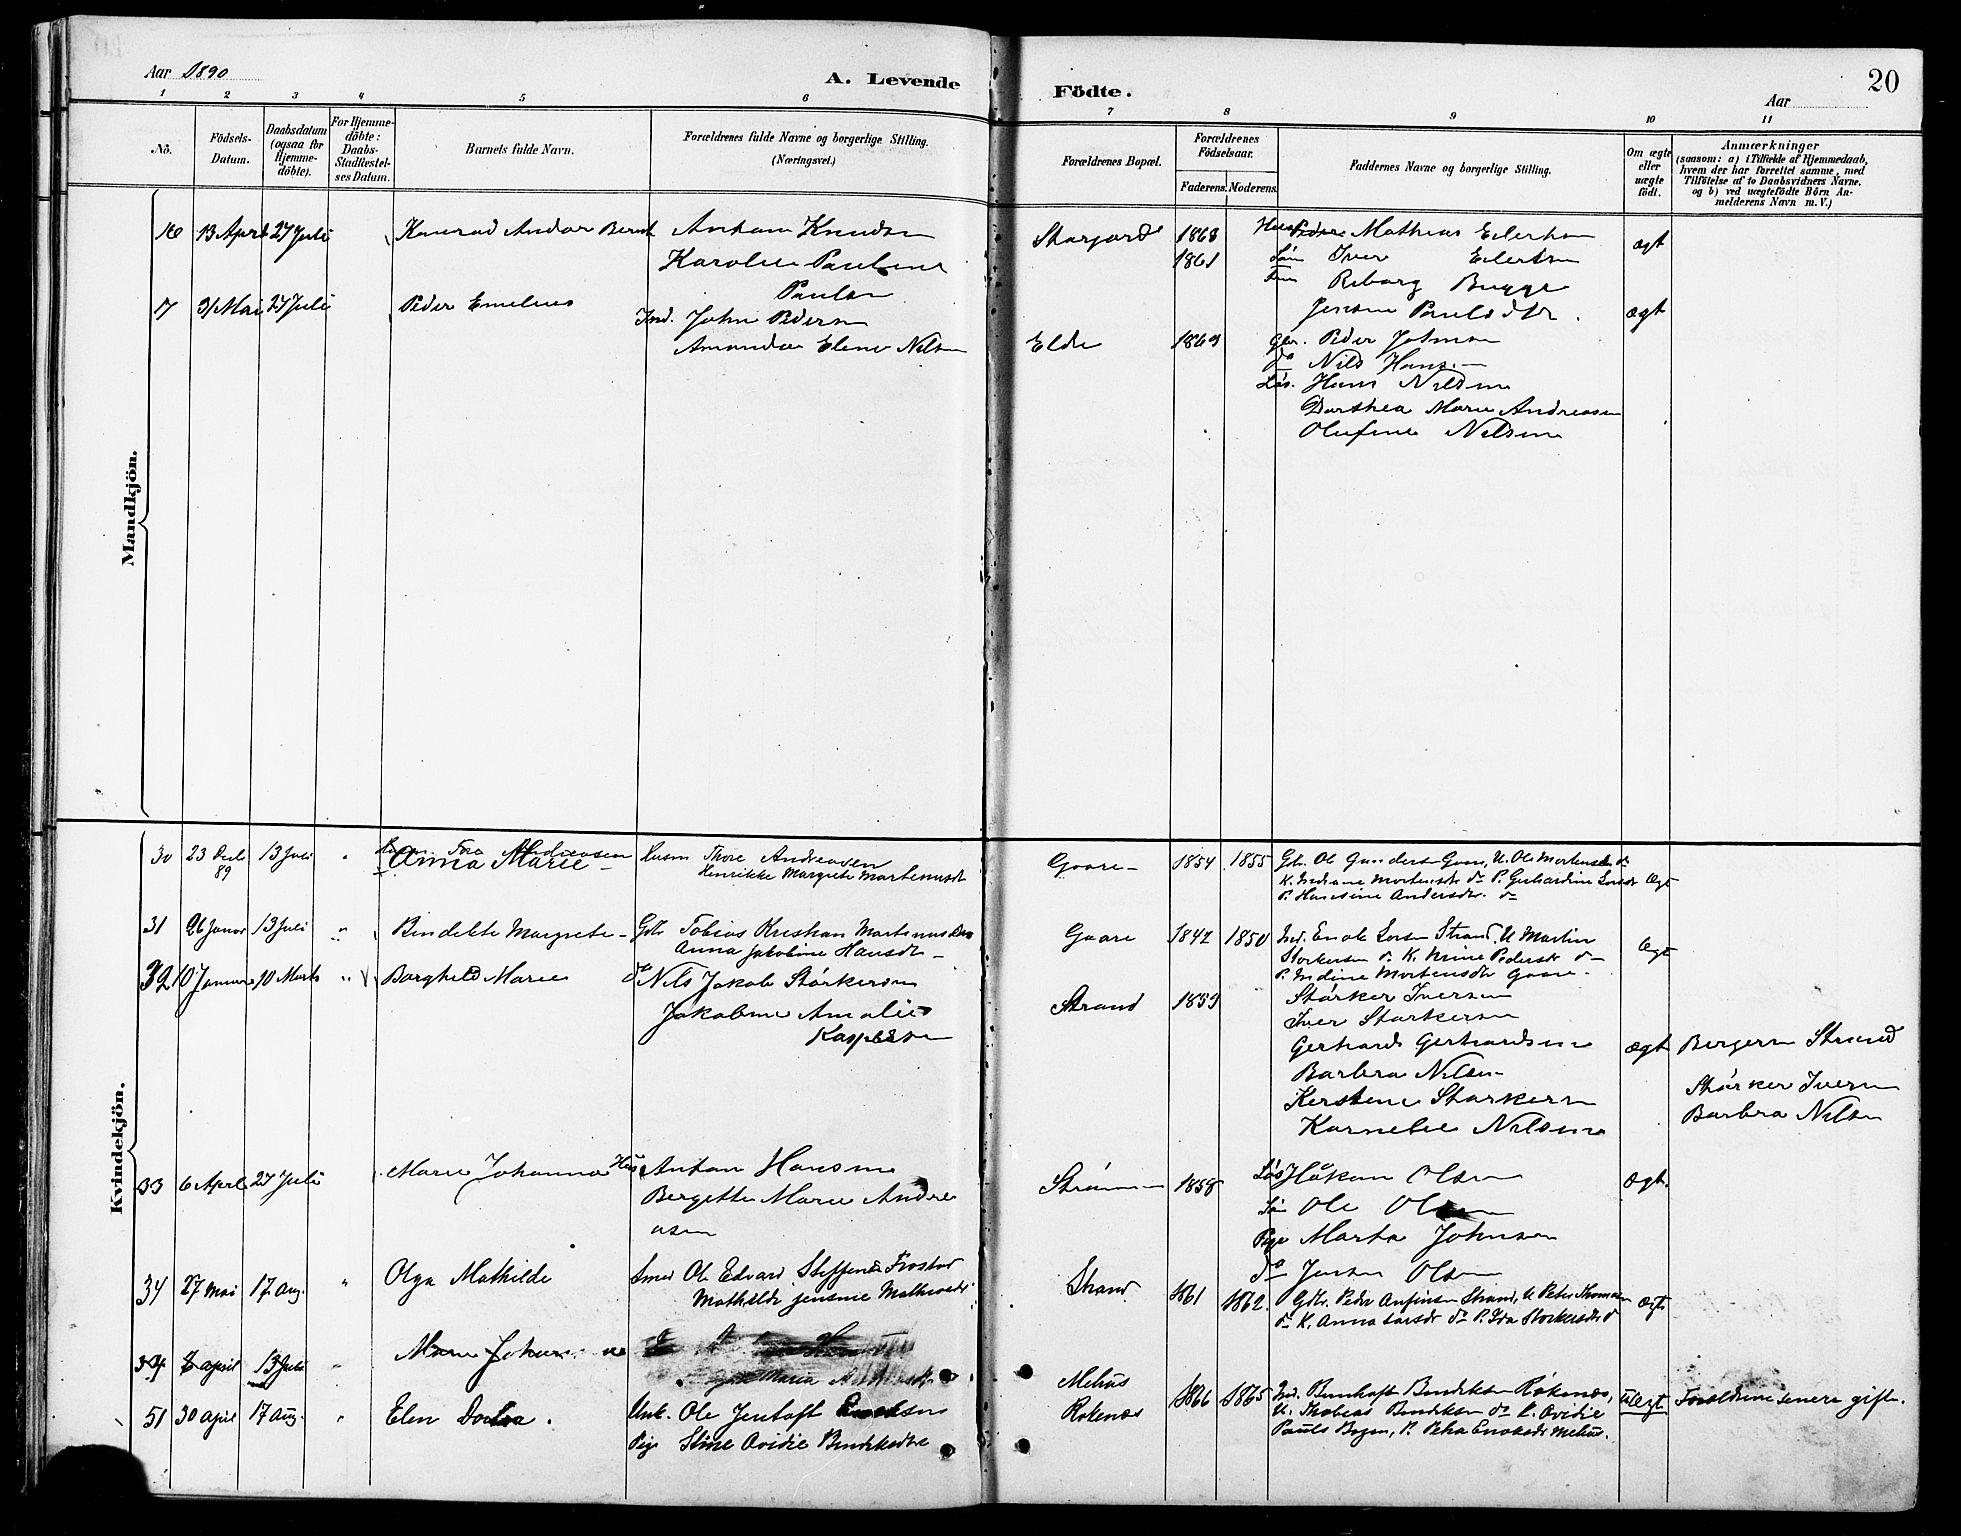 Aar 1890
A. Levende
Födte.
Aar
20
1 2 3 4 5 6 7 8 9 10 11
No.
Födsels-
Datum.
Daabsdatum
(ogsaa for
Hjemme-
döbte).
For Hjemme-
döbte:
Daabs-
Stadfestel-
ses Datum.
Barnets fulde Navn.
Forældrenes fulde Navne og borgerlige Stilling.
(Næringsvei.)
Forældrenes Bopæl.
Forældrenes
Födselsaar.
Faderens. Moderens.
Faddernes Navne og borgerlige Stilling.
Om ægte
eller
uægte
födt.
Anmærkninger
(saasom: a) i Tilfælde af Hjemmedaab,
hvem der har forrettet samme, med
Tilföielse af to Daabsvidners Navne,
og b) ved uægtefödte Börn An-
melderens Navn m. V.)
Mandkjön.
16 13 April 27 Juli Konrad Andor Bernt Anton Knudsen
Karolie Pauline
Paulsen
1868
1861
Mathias Eilertsen
Iver Eilertsen
Reborg Bugge
Jensen
ægt
17 31 Mai 27 Juli Peder Emelius Ind. John Pedersen
Amanda Elene Nilsen
Elde 1869
Peder Johnsen
do Nils Hansen
Løs. Hans Nilsen
Dorthea Marie Andreasen
Olufine Nilsen
ægt
Kvindekjön.
30 23 Decb 89 13 Juli " Anna Marie Husm Thore Andreasen
Henrikke Margrete Martinusdt
Gaare 1854 1855 Gbr. Ole Gundersen Gaare, U. Ole Mortensen do
K. Indiane Mortensdt do P. Gerhardine Larsdt
P. Hansine Andersdtr. do
Ægt
31 26 Januar 13 Juli " Bendekte Margrete Gbr Tobias Kristian Martinussen
Anna Jakobine Hansdtr
Gaare 1842 1850 Ind. Enok Larsen Strand, U Martin
Storkersen do K. Nrine Pedersdtr do
P. Indine Mortensdtr Gaare.
Ægt
32 10 Januar 10 Marts " Borghild Marie do Nils Jakob Størkersen
Jakobine Amalie
Kaspersen
Strand 1859
Størker Iversen
Iver Størkersen
Gerhard Gerhardsen
Barbra Nilsen
Kerstene Størkersen
Kornelie Nilsen
ægt
Bergern Strand
Størker Iversen
Barbra Nilsen
33 6 April 27 Juli Marie Johanna Hus Anton Hansen
Bergette Marie Andre
asen
1858
Løs Håkon Olsen
Ole Olsen
Pige Marta Johnsen
do Jensen Olsen
ægt.
34 27 Mai 17 Aug. " Olga Mathilde Smed Ole Edvard Steffensen Frostad
Mathilde Jensine Mathisdt
Strand 1861 1862.
Gbr. Peder Anfinsen Strand, U Peter Thomasen
do K. Anna Larsdt do P. Ida Storkersdtr do
ægte
34 6 april 13 Juli " Marie Johanna
Maria
51 30 April 17 Aug. " Elen Dorthea. Unk. Ole Jentoft
Pige Stine Ovidie Bendiksdtr
Mehus
Røkenæs
1866 1865
Ind. Bernhoft Bendiksen Røkenæs,
U. Thobias Bendiksen do K. Ovidie
Pauls Bogen, P. Petra Enoksdt Mehus.
Uægt
Forældrene senere gift.